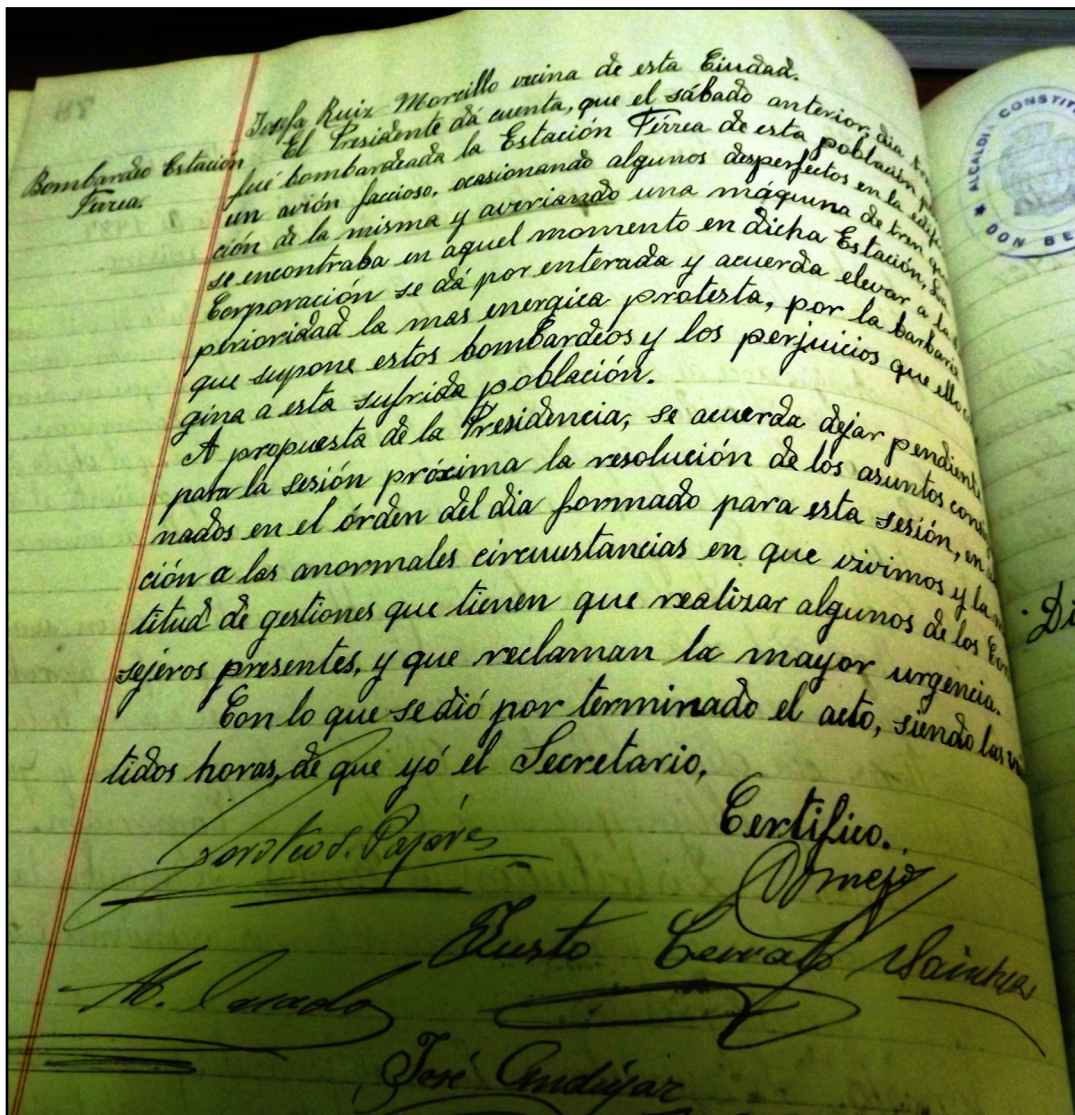 Josefa Ruiz Morcillo vecina de esta Ciudad.
Bombardeo Estación
Férrea.
El Presidente dá cuenta, que el sábado anterior, dia
fué bombardeada la Estación Férrea de esta población, p
un avión faccioso, ocasionando algunos desperfectos en la edifi
ción de la misma y averiando una máquina de tren que
se encontraba en aquel momento en dicha Estación, La
Corporación se dá por enterada y acuerda elevar a la
perioridad la mas energica protesta, por la barbarie
que supone estos bombardeos y los perjuicios que ello
gina a esta sufrida población.
A propuesta de la Presidencia, se acuerda dejar pendiente
para la sesión próxima la resolución de los asuntos consig
nados en el órden del dia formado para esta sesión, en
ción a las anormales circunstancias en que vivimos y la
titud de gestiones que tienen que realizar algunos de los Con
sejeros presentes, y que reclaman la mayor urgencia.
Con lo que se dió por terminado el acto, siendo las
tidos horas, de que yó el Secretario,
Certifico.
Justo Sánchez
José Andújar
ALCALDI CONSTIT
DON BE
Di